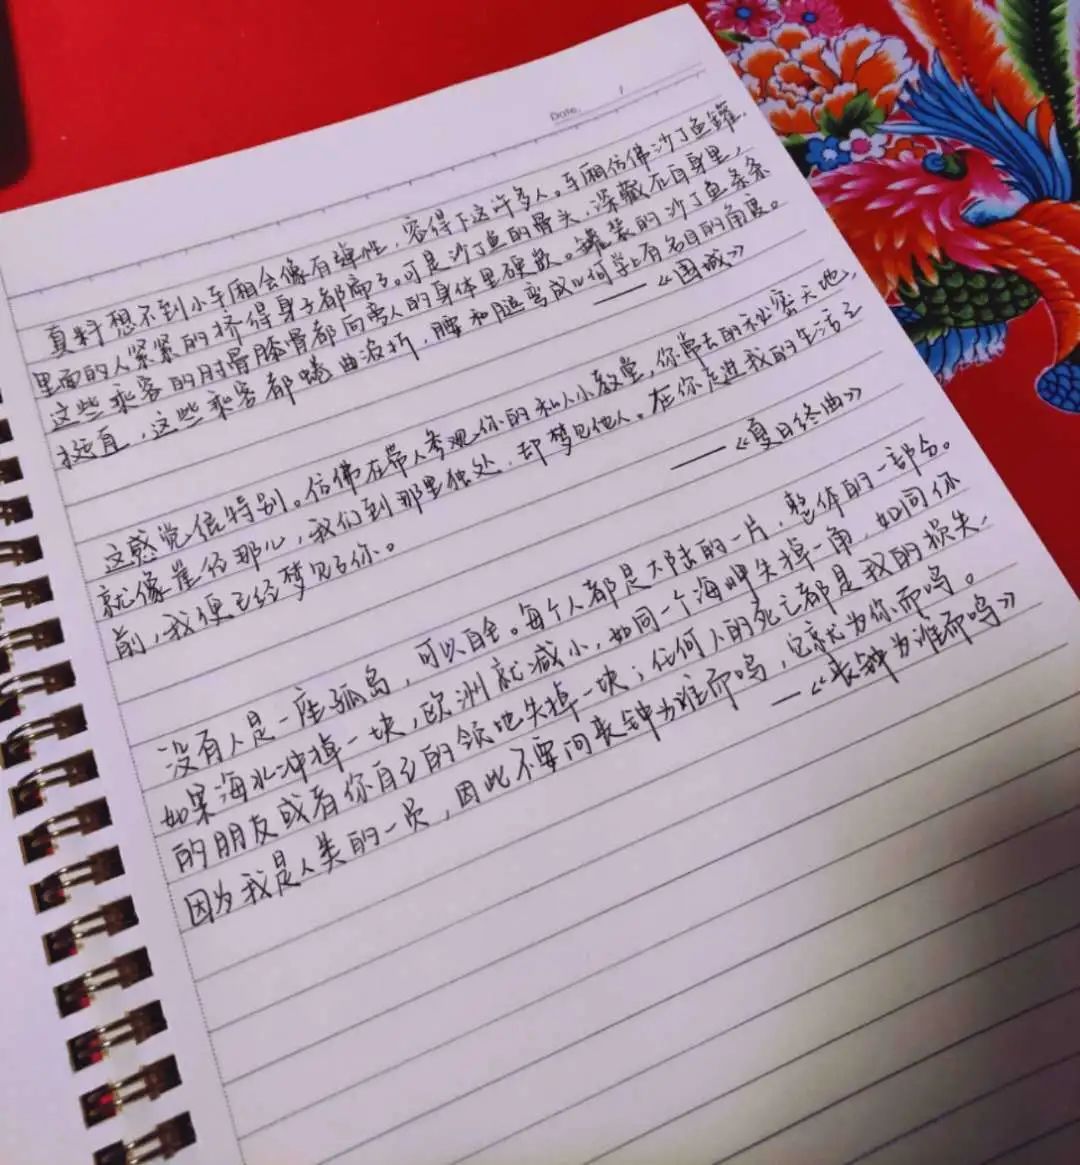 Date. /
真料想不到小车厢会像有弹性，容得下这许多人。车厢仿佛沙丁鱼罐，
里面的人紧紧的挤得身子都扁了。可是沙丁鱼的骨头，深藏在自身里，
这些乘客的肘骨膝骨都向旁人的身体里硬嵌。罐装的沙丁鱼条条
挺直，这些乘客都蜷曲波折，腰和腿弯成几何学上有名目的角度。
——《围城》
这感觉很特别。仿佛在带人参观你的私人小教堂，你常去的秘密天地，
就像崖径那儿，我们到那里独处，却梦见他人。在你走进我的生活之
前，我便已经梦见了你。
——《夏日终曲》
没有人是一座孤岛，可以自全。每个人都是大陆的一片，整体的一部分。
如果海水冲掉一块，欧洲就减小，如同一个海岬失掉一角，如同你
的朋友或者你自己的领地失掉一块；任何人的死亡都是我的损失，
因为我是人类的一员，因此不要问丧钟为谁而鸣，它就为你而鸣。
—《丧钟为谁而鸣》